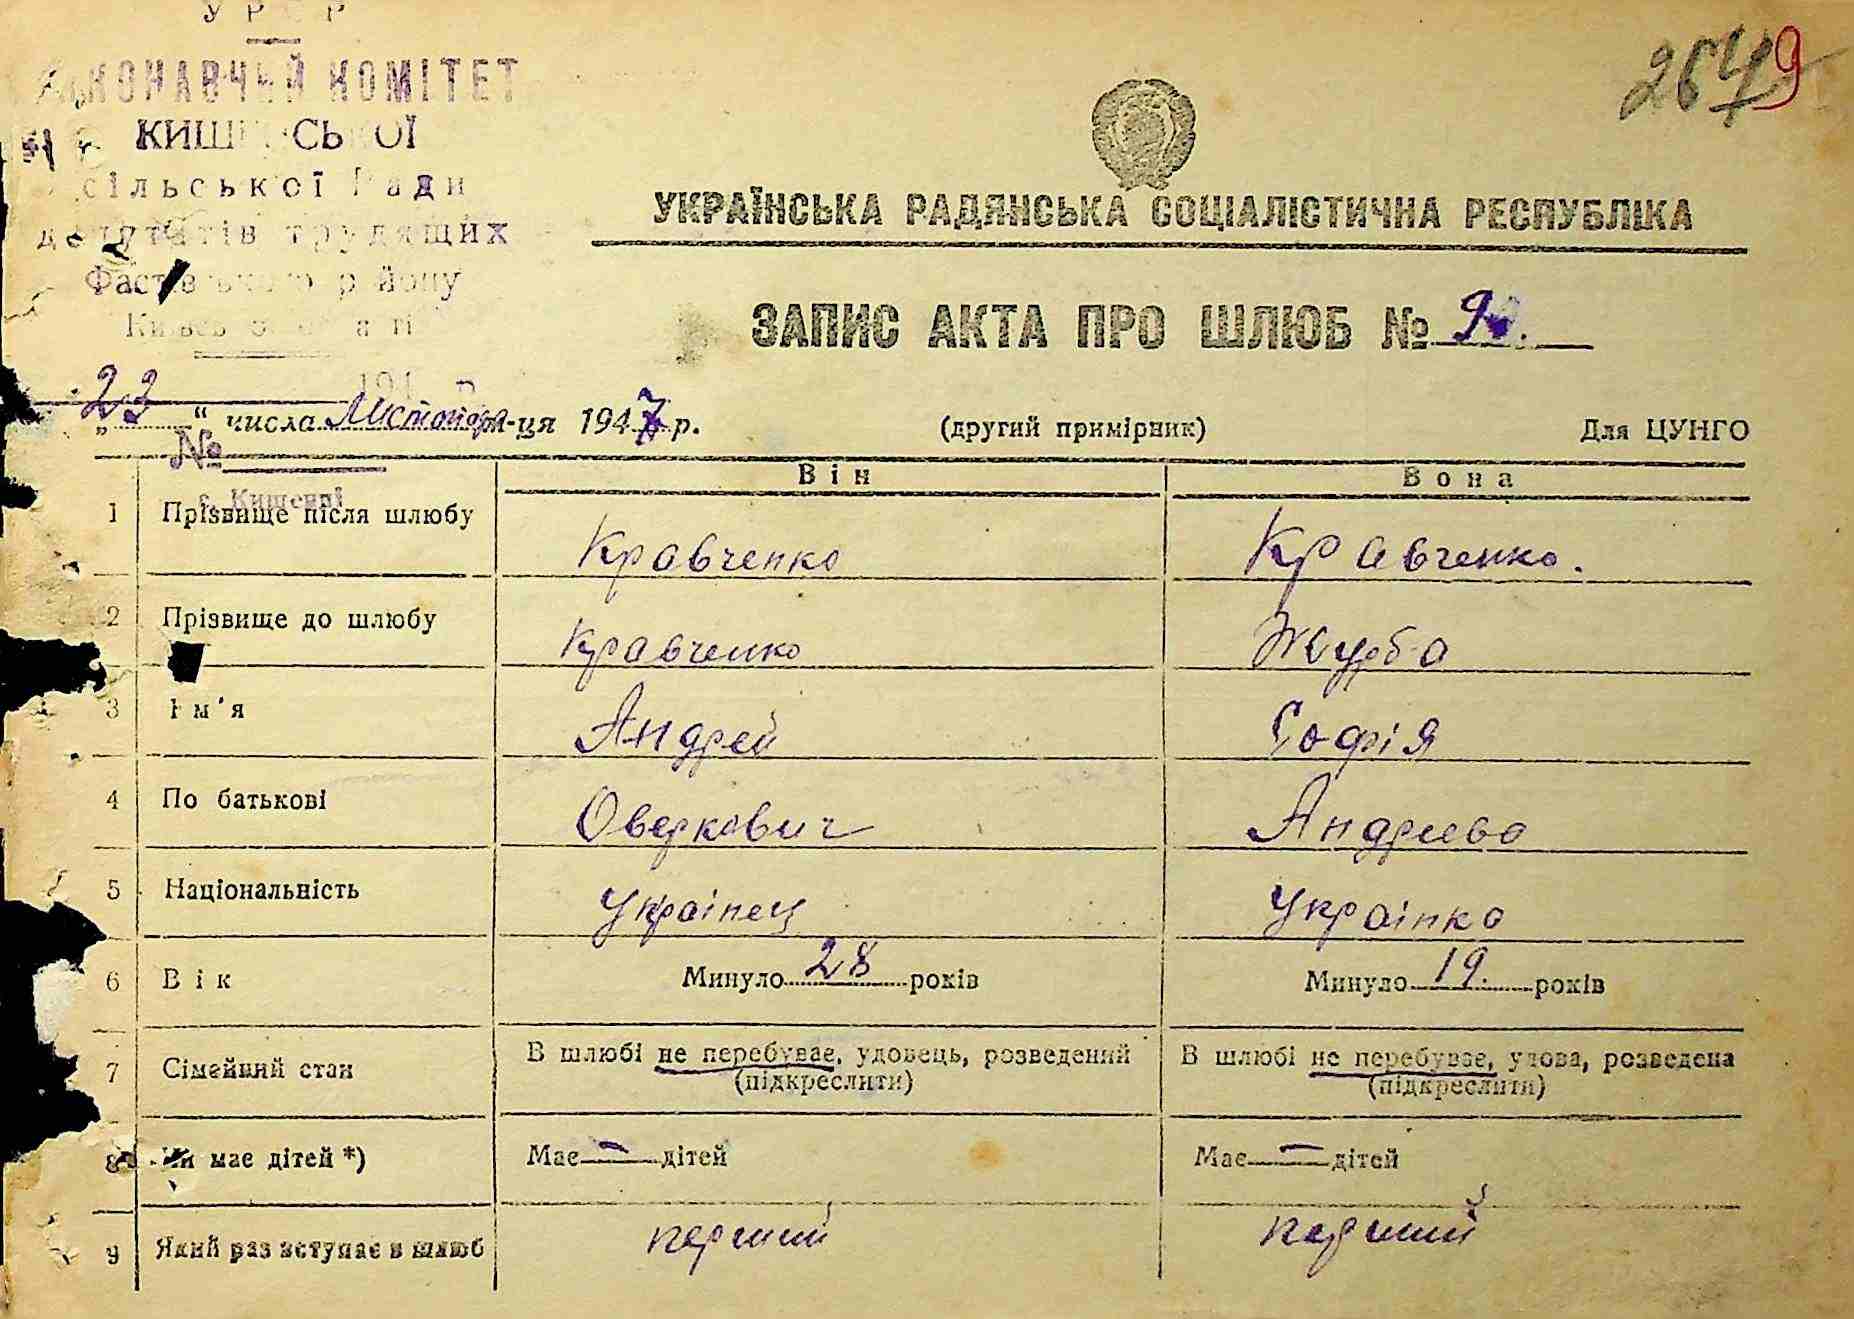 УРСР
ВИКОНАВЧИЙ КОМІТЕТ
КИШИНСЬКОЇ
сільської Ради
депутатів трудящих
Фастівського району
Київської області
УКРАЇНСЬКА РАДЯНСЬКА СОЦІАЛІСТИЧНА РЕСПУБЛІКА
ЗАПИС АКТА ПРО ШЛЮБ №
„23“ числа Листопада м-ця 1947 р. (другий примірник) Для ЦУНГО
№
Він Вона
1 Прізвище після шлюбу Кравченко Кравченко.
2 Прізвище до шлюбу Кравченко Журба
3 Ім'я Андрей Софія
4 По батькові Оверкович Андреева
5 Національність Українец Українка
6 Вік Минуло 28 років Минуло 19. років
7 Сімейний стан В шлюбі не перебуває, удовець, розведений В шлюбі не перебуває, удова, розведена
(підкреслити) (підкреслити)
8 Чи має дітей *) Має — дітей Має — дітей
9 Який раз вступає в шлюб перший перший